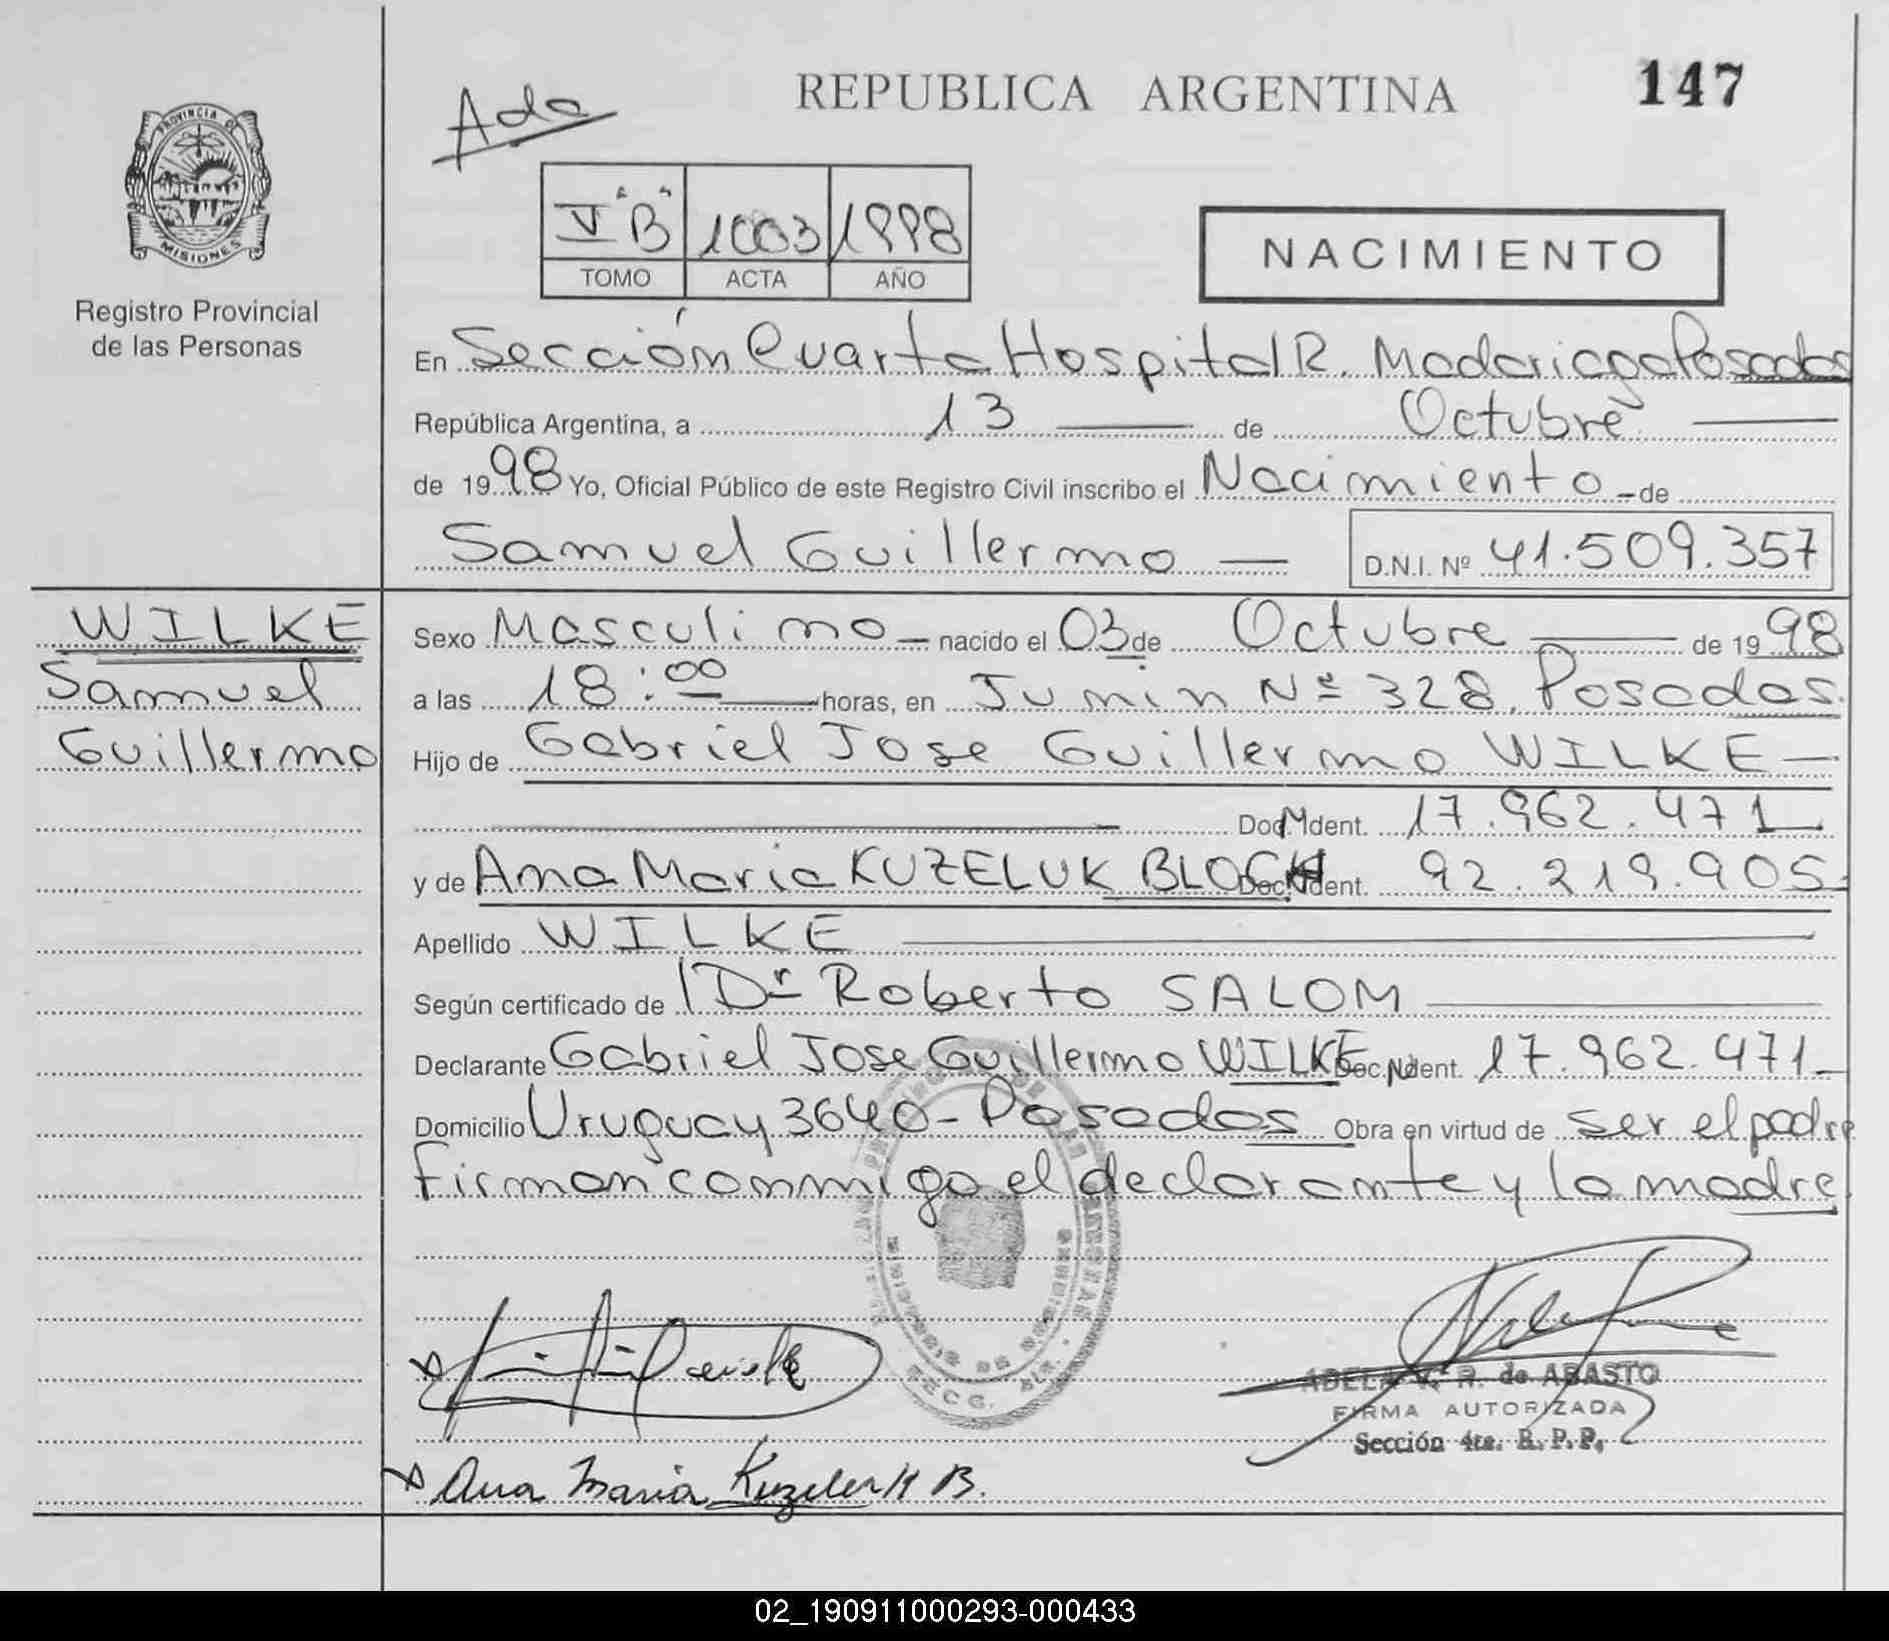 REPUBLICA ARGENTINA
147
Ada
PROVINCIA DE
MISIONES
Registro Provincial
de las Personas
V "B" 1003 1998
TOMO ACTA AÑO
NACIMIENTO
En Sección Cuarta Hospital R. Madariaga Posadas
República Argentina, a 13 de Octubre
de 1998 Yo, Oficial Público de este Registro Civil inscribo el Nacimiento de
Samuel Guillermo D.N.I. Nº 41.509.357
WILKE
Samuel
Guillermo
Sexo Masculino nacido el 03 de Octubre de 1998
a las 18:00 horas, en Junin Nº 328, Posadas.
Hijo de Gabriel Jose Guillermo WILKE
Doc. Ident. 17.962.471
y de Ana Maria KUZELUK BLOCH Doc. Ident. 92.219.905
Apellido WILKE
Según certificado de Dr Roberto SALOM
Declarante Gabriel Jose Guillermo WILKE Doc. Ident. 17.962.471
Domicilio Uruguay 3640 - Posadas Obra en virtud de ser el padre
firman conmigo el declarante y la madre.
ADELA V. R. de ABASTO
FIRMA AUTORIZADA
Sección 4ta. R. P. P.
Ana Maria Kuzeluk B.
02_190911000293-000433